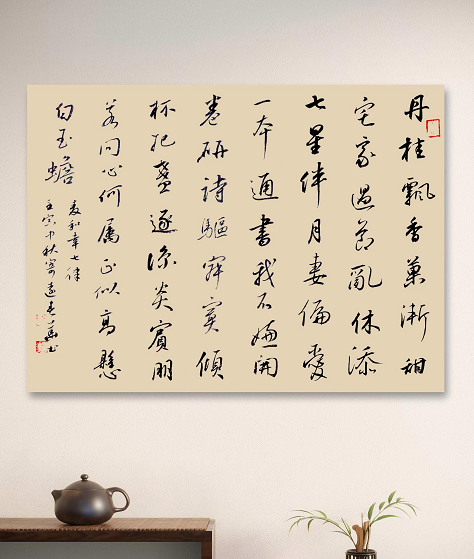 丹桂飄香菓漸甜
宅家過节亂休添
七星伴月妻偏愛
一本通書我不嫌開
卷研詩驅寂寞傾
杯把盞逐涼炎賓朋
若问心何属正似高懸
白玉蟾
七律
壬寅中秋